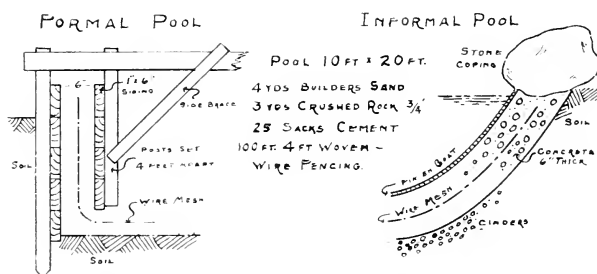 FORMAL POOL
6"
1"x6"
SIDING
SIDE BRACE
SOIL
POSTS SET
4 FEET APART
WIRE MESH
SOIL
POOL 10 FT x 20 FT.
4 YDS BUILDERS SAND
3 YDS CRUSHED ROCK 3/4"
25 SACKS CEMENT
100 FT. 4 FT WOVEN -
WIRE FENCING.
INFORMAL POOL
STONE
COPING
SOIL
CONCRETE
6" THICK
FINISH COAT
WIRE MESH
CINDERS